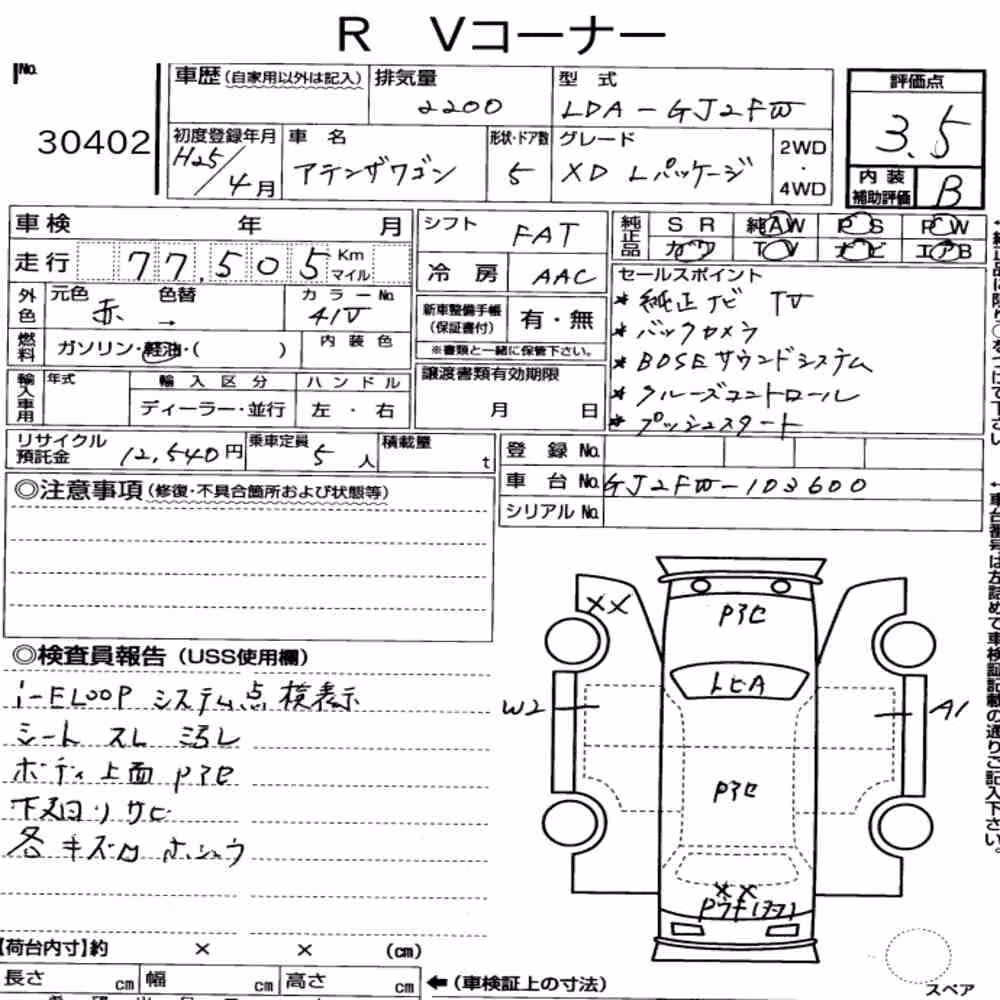 R Vコーナー
No.
30402
車歴(自家用以外は記入)
排気量
2200
型式
LDA-GJ2FW
評価点
3.5
初度登録年月
H25/4月
車名
アテンザワゴン
形状・ドア数
5
グレード
XD Lパッケージ
2WD
・
4WD
内装
補助評価
B
車検 年 月
走行 77,505 Km
マイル
シフト
FAT
冷房
AAC
純正品
SR 純AW PS RCW
カワ TV ナビ エアB
外色
元色 色替
赤 →
カラーNo
41V
新車整備手帳
(保証書付)
有・無
※書類と一緒に保管下さい。
セールスポイント
* 純正ナビ TV
* バックカメラ
* BOSEサウンドシステム
* クルーズコントロール
* プッシュスタート
燃料
ガソリン・軽油・( )
内装色
輸入車用
年式
輸入区分
ディーラー・並行
ハンドル
左・右
譲渡書類有効期限
月 日
リサイクル
預託金
12,540円
乗車定員
5人
積載量
t
登録No.
車台No.
GJ2FW-103600
シリアルNo.
◎注意事項(修復・不具合箇所および状態等)
◎検査員報告(USS使用欄)
i-ELOOP システム点検表示
シート スレ ヨゴレ
ボディ上面 Pアセ
下廻リ サビ
各 キズ ホシュウ
XX
Pアセ
LヒA
W2
A1
Pアセ
XX
【荷台内寸】約 × × (cm)
長さ cm 幅 cm 高さ cm
←(車検証上の寸法)
スペア
↑車台番号は左詰めで車検証記載の通りご記入下さい。